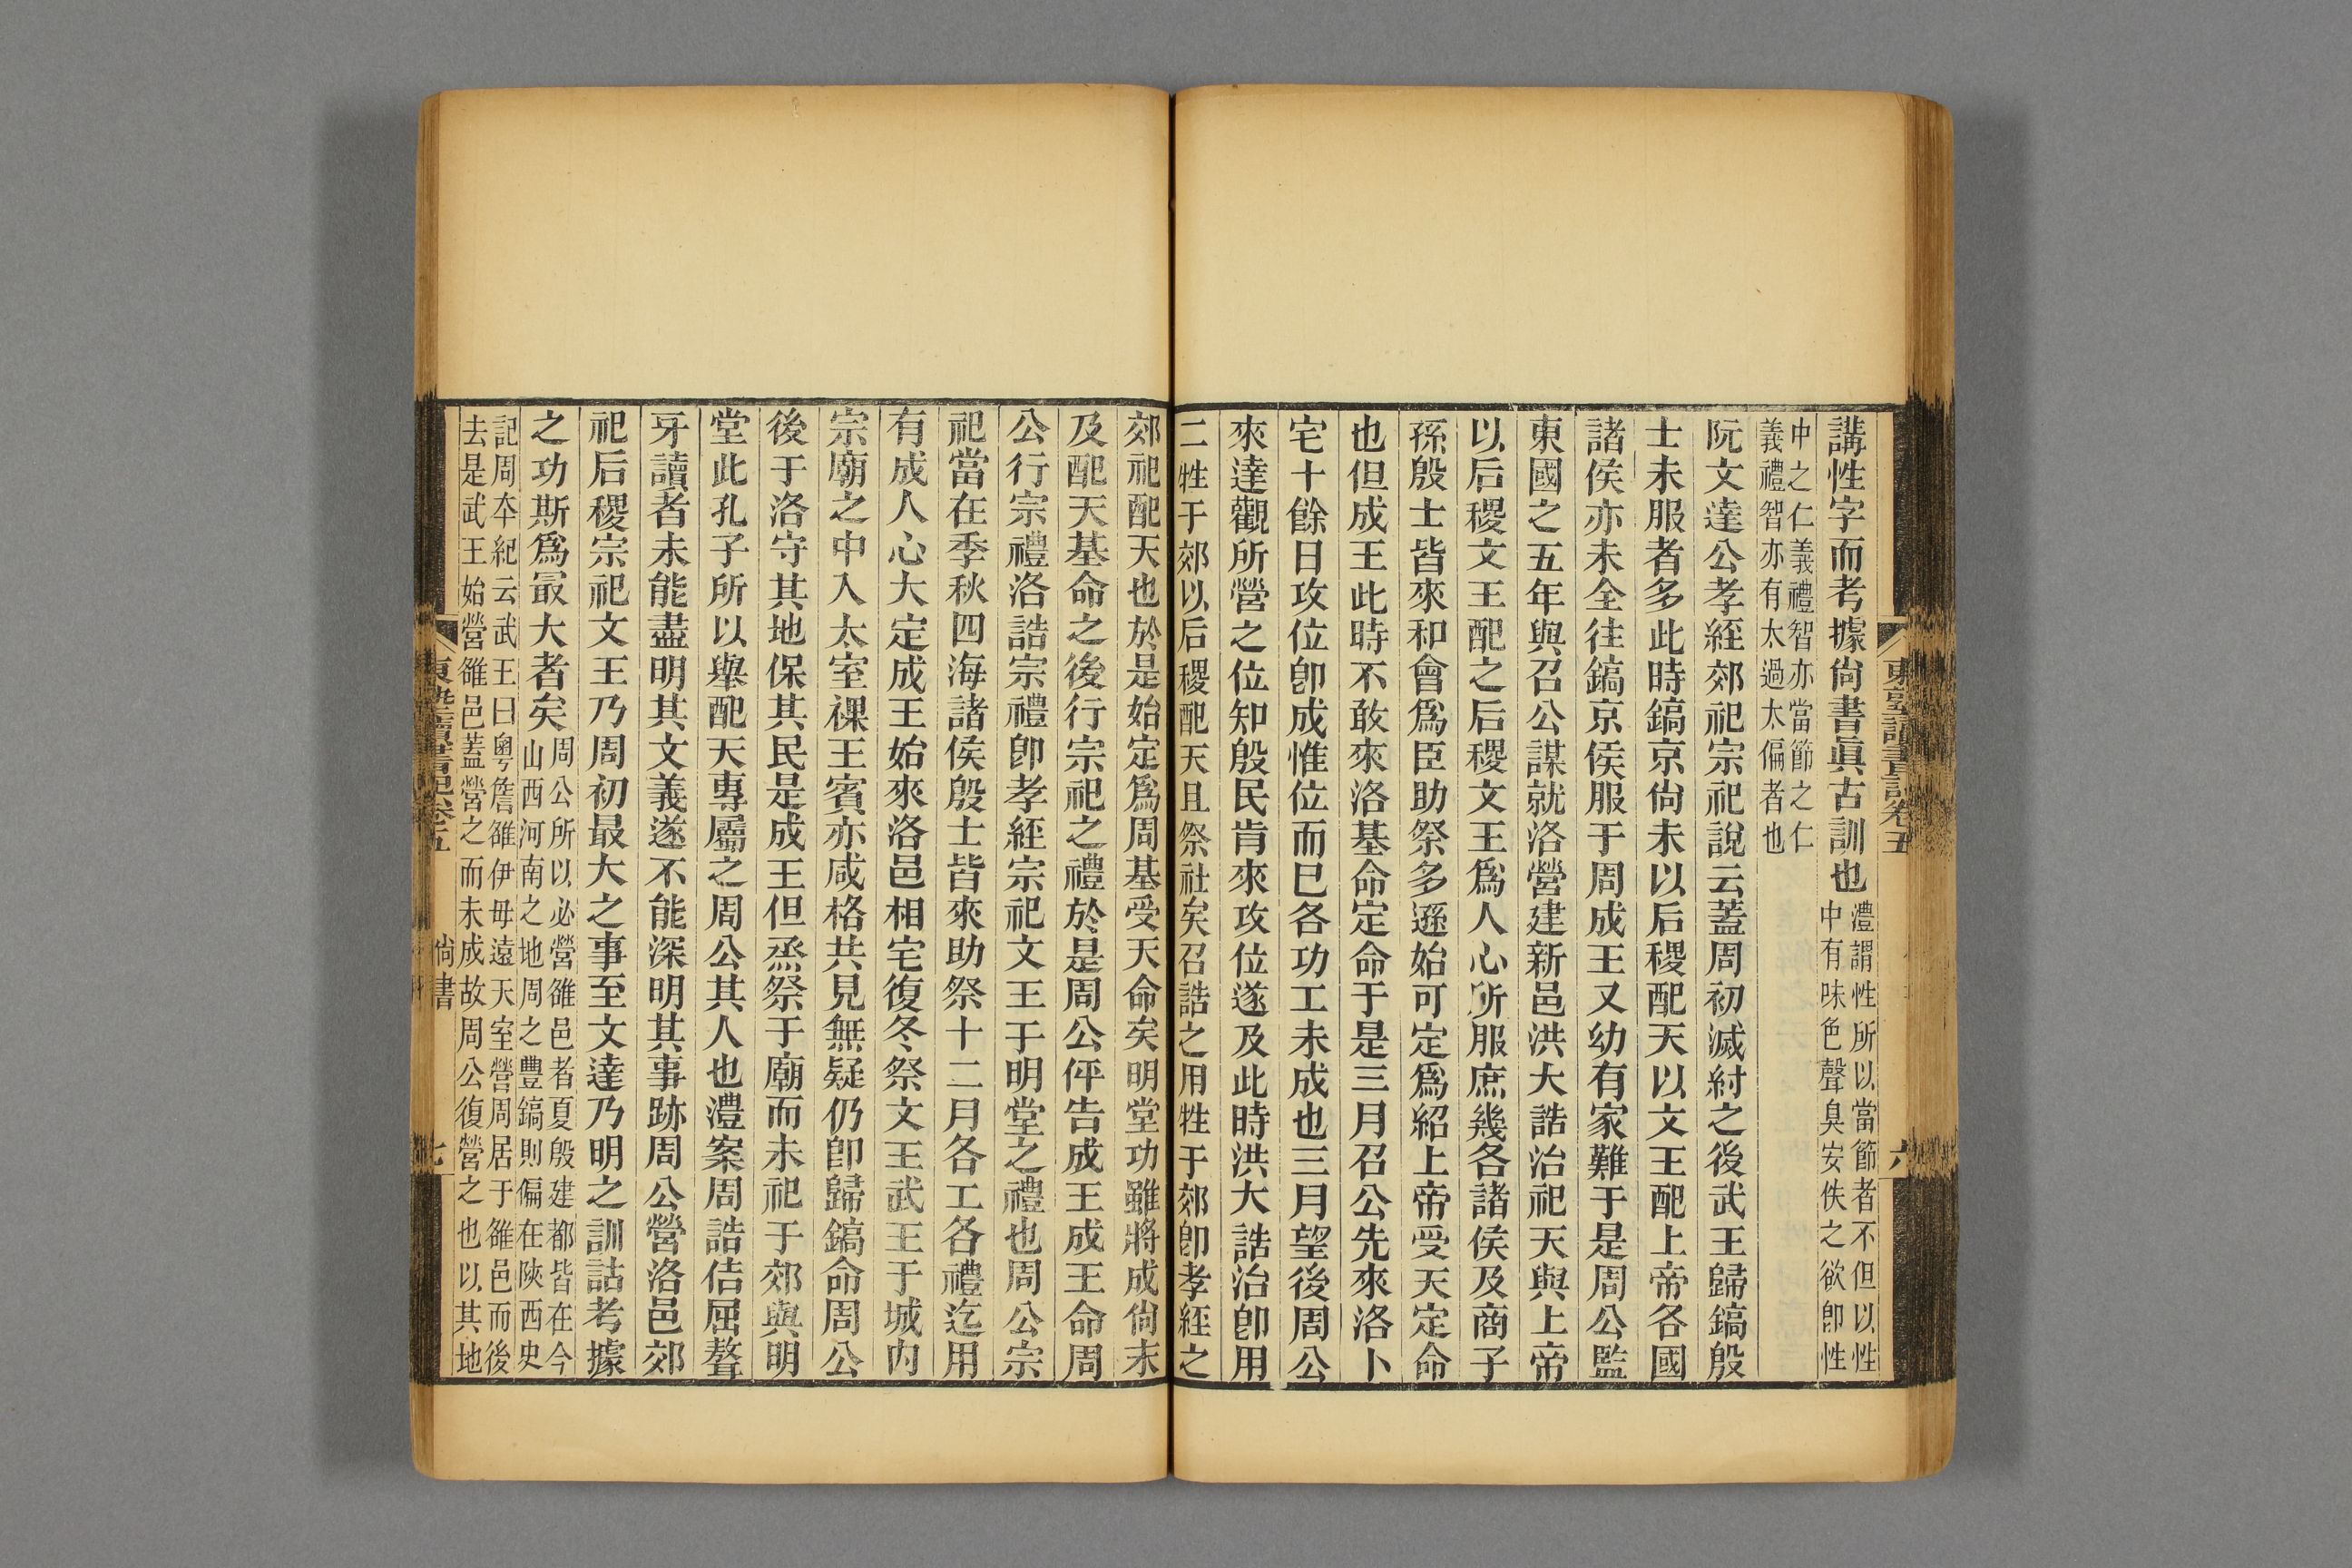 東塾讀書記卷五
六
講性字而考據尙書眞古訓也澧謂性所以當節者不但以性
中有味色聲臭安佚之欲卽性
中之仁義禮智亦當節之仁
義禮智亦有太過太偏者也
阮文達公孝經郊祀宗祀說云蓋周初滅紂之後武王歸鎬殷
士未服者多此時鎬京尙未以后稷配天以文王配上帝各國
諸侯亦未全往鎬京侯服于周成王又幼有家難于是周公監
東國之五年與召公謀就洛營建新邑洪大誥治祀天與上帝
以后稷文王配之后稷文王爲人心所服庶幾各諸侯及商子
孫殷士皆來和會爲臣助祭多遜始可定爲紹上帝受天定命
也但成王此時不敢來洛基命定命于是三月召公先來洛卜
宅十餘日攻位卽成惟位而已各功工未成也三月望後周公
來達觀所營之位知殷民肯來攻位遂及此時洪大誥治卽用
二牲于郊以后稷配天且祭社矣召誥之用牲于郊卽孝經之
郊祀配天也於是始定爲周基受天命矣明堂功雖將成尙未
及配天基命之後行宗祀之禮於是周公伻告成王成王命周
公行宗禮洛誥宗禮卽孝經宗祀文王于明堂之禮也周公宗
祀當在季秋四海諸侯殷士皆來助祭十二月各工各禮迄用
有成人心大定成王始來洛邑相宅復冬祭文王武王于城內
宗廟之中入太室祼王賓亦咸格共見無疑仍卽歸鎬命周公
後于洛守其地保其民是成王但烝祭于廟而未祀于郊與明
堂此孔子所以舉配天專屬之周公其人也澧案周誥佶屈聱
牙讀者未能盡明其文義遂不能深明其事跡周公營洛邑郊
祀后稷宗祀文王乃周初最大之事至文達乃明之訓詁考據
之功斯爲最大者矣周公所以必營雒邑者夏殷建都皆在今
山西河南之地周之豐鎬則偏在陝西史
記周本紀云武王曰粵詹雒伊毋遠天室營周居于雒邑而後
去是武王始營雒邑蓋營之而未成故周公復營之也以其地
東塾讀書記卷五
尙書
七